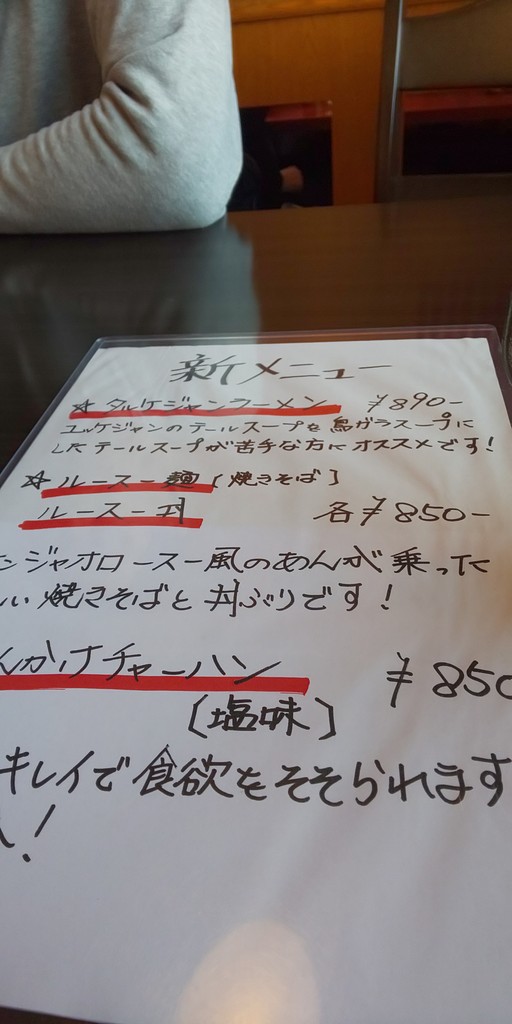 新メニュー
☆タルケジャンラーメン ¥890-
ユッケジャンのテールスープを鳥ガラスープに
したテールスープが苦手な方にオススメです!
☆ルースー麺[焼きそば]
ルースー丼 各¥850-
ンジャオロースー風のあんが乗った
い焼きそばと丼ぶりです!
んかけチャーハン ¥850
[塩味]
キレイで食欲をそそられます
!